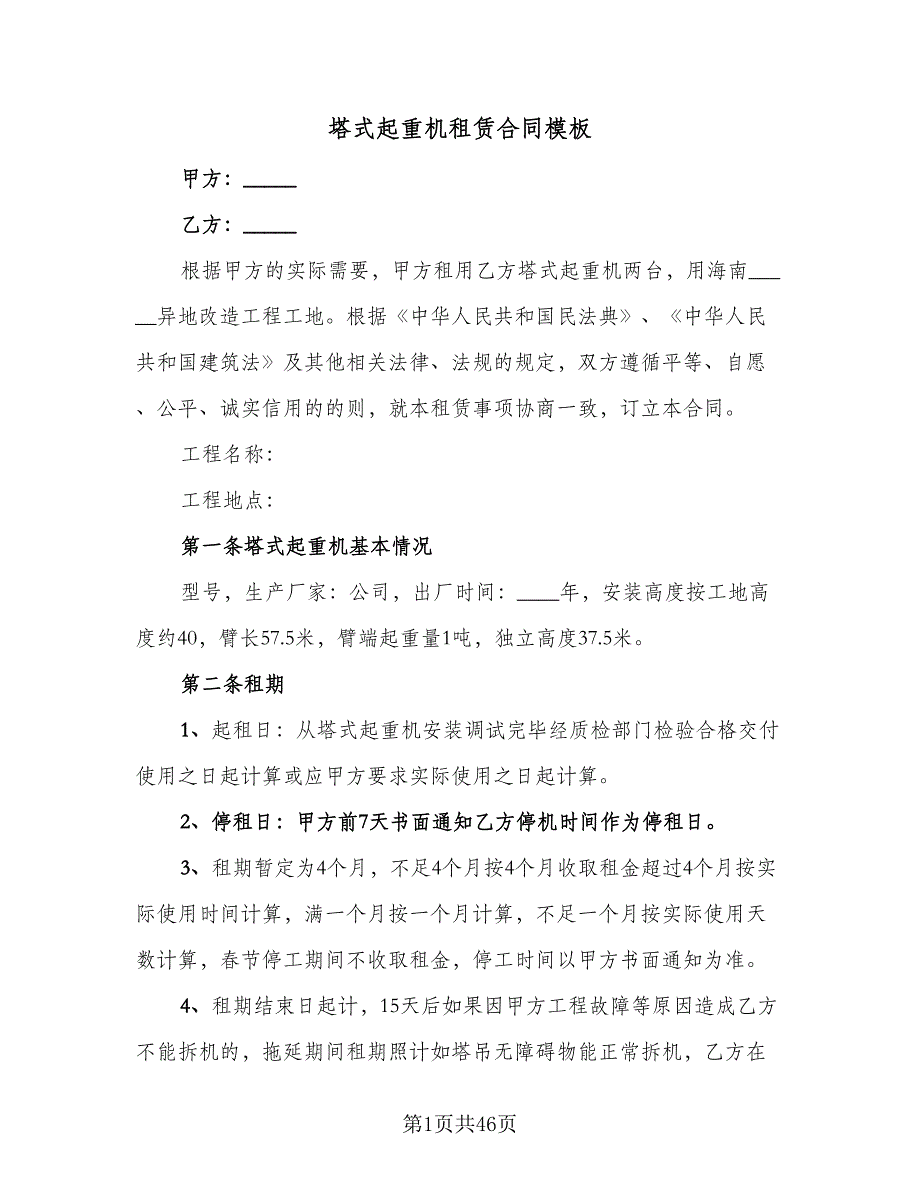 塔式起重机租赁合同模板
甲方：_____
乙方：_____
根据甲方的实际需要，甲方租用乙方塔式起重机两台，用海南___
__异地改造工程工地。根据《中华人民共和国民法典》、《中华人民
共和国建筑法》及其他相关法律、法规的规定，双方遵循平等、自愿
、公平、诚实信用的的则，就本租赁事项协商一致，订立本合同。
工程名称：
工程地点：
第一条塔式起重机基本情况
型号，生产厂家：公司，出厂时间：____年，安装高度按工地高
度约40，臂长57.5米，臂端起重量1吨，独立高度37.5米。
第二条租期
1、起租日：从塔式起重机安装调试完毕经质检部门检验合格交付
使用之日起计算或应甲方要求实际使用之日起计算。
2、停租日：甲方前7天书面通知乙方停机时间作为停租日。
3、租期暂定为4个月，不足4个月按4个月收取租金超过4个月按实
际使用时间计算，满一个月按一个月计算，不足一个月按实际使用天
数计算，春节停工期间不收取租金，停工时间以甲方书面通知为准。
4、租期结束日起计，15天后如果因甲方工程故障等原因造成乙方
不能拆机的，拖延期间租期照计如塔吊无障碍物能正常拆机，乙方在
第1页共46页